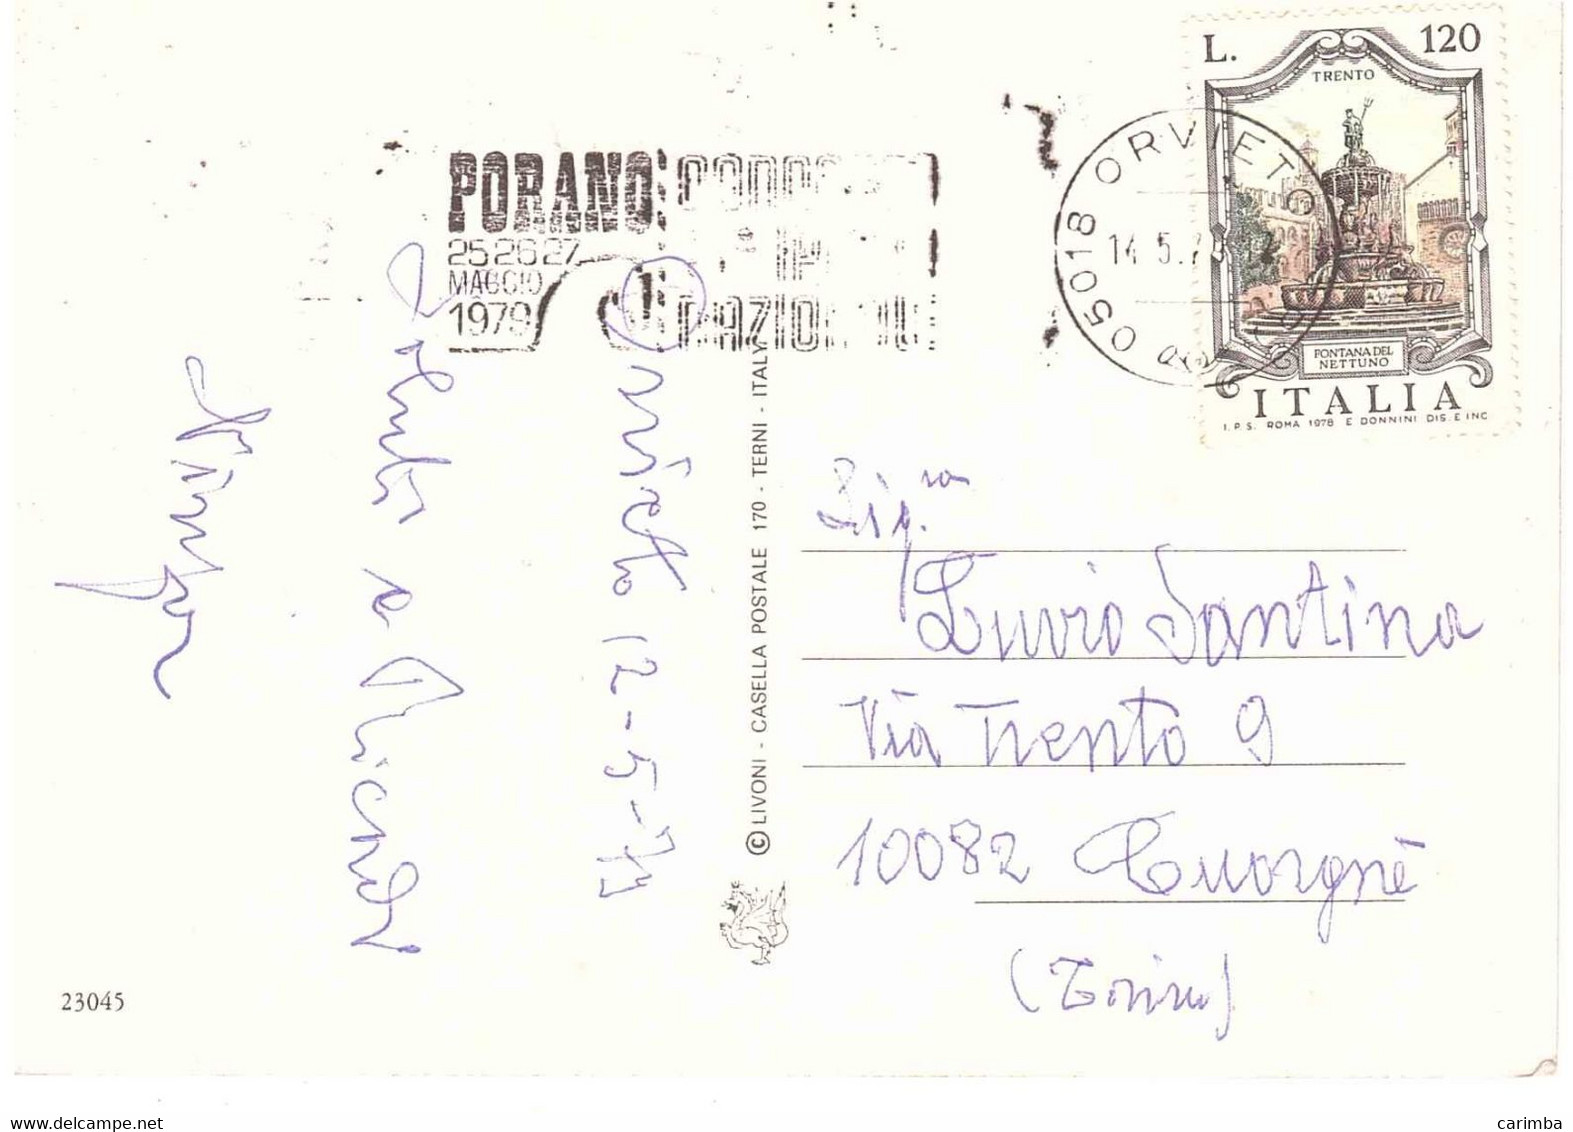 L. 120
TRENTO
FONTANA DEL
NETTUNO
ITALIA
I.P.S. ROMA 1978 E DONNINI DIS. E INC
05018 ORVIETO
14.5.7
PORANO
25 26 27
MAGGIO
1979
Orvieto 12-5-79
Saluti e Ricordi
© LIVONI - CASELLA POSTALE 170 - TERNI - ITALY
Sig.ra
Santina
Via Trento 9
10082 Cuorgnè
(Torino)
23045
www.delcampe.net
carimba